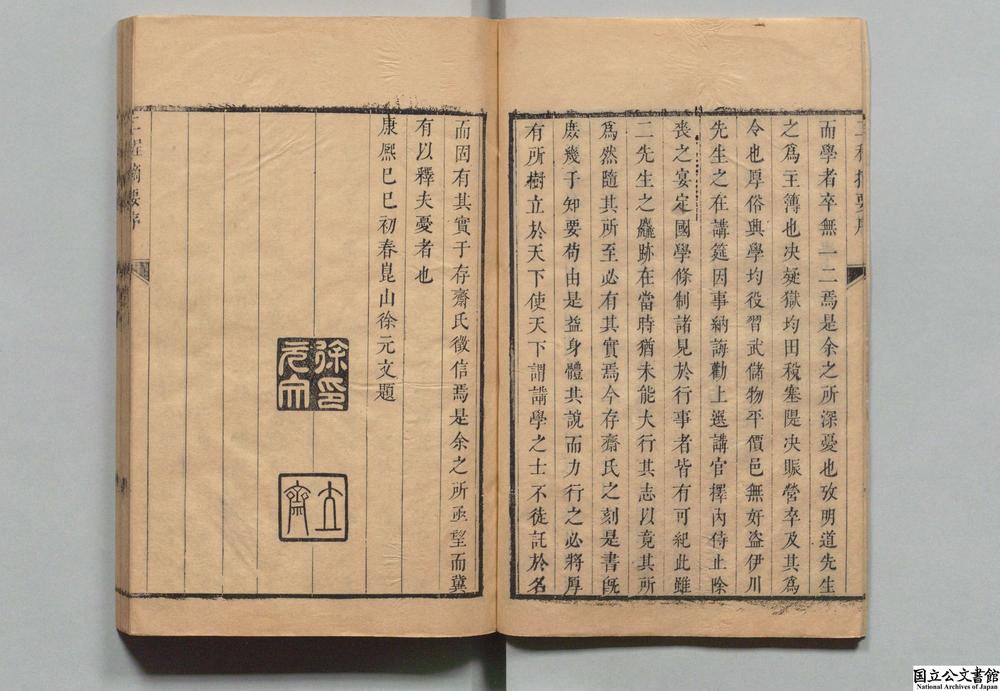 而學者卒無一二焉是余之所深憂也攷明道先生
之爲主簿也决疑獄均田稅塞隄决賑營卒及其爲
令也厚俗興學均役習武儲物平價邑無奸盜伊川
先生之在講筵因事納誨勸上選講官擇內侍止除
喪之宴定國學條制諸見於行事者皆有可紀此雖
二先生之麤跡在當時猶未能大行其志以竟其所
爲然隨其所至必有其實焉今存齋氏之刻是書旣
庶幾于知要苟由是益身體其說而力行之必將厚
有所樹立於天下使天下謂講學之士不徒託於名
而固有其實于存齋氏徵信焉是余之所亟望而冀
有以釋夫憂者也
康熈己巳初春崑山徐元文題
徐元文印
立齋
二程摘要序
国立公文書館
National Archives of Japan